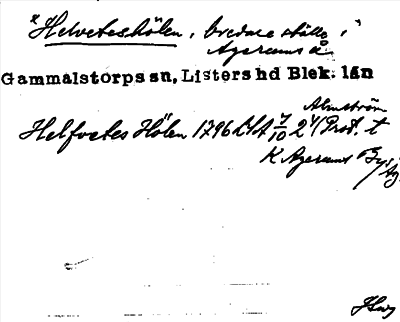 "Helveteshölen, bredare ställe i
Agerums å
Gammalstorps sn, Listers hd Blek. län
Almström
Helfvetes Hölen 1796 LSA 7/10 2 4/ Prot. t
K Agerums By/
Ag